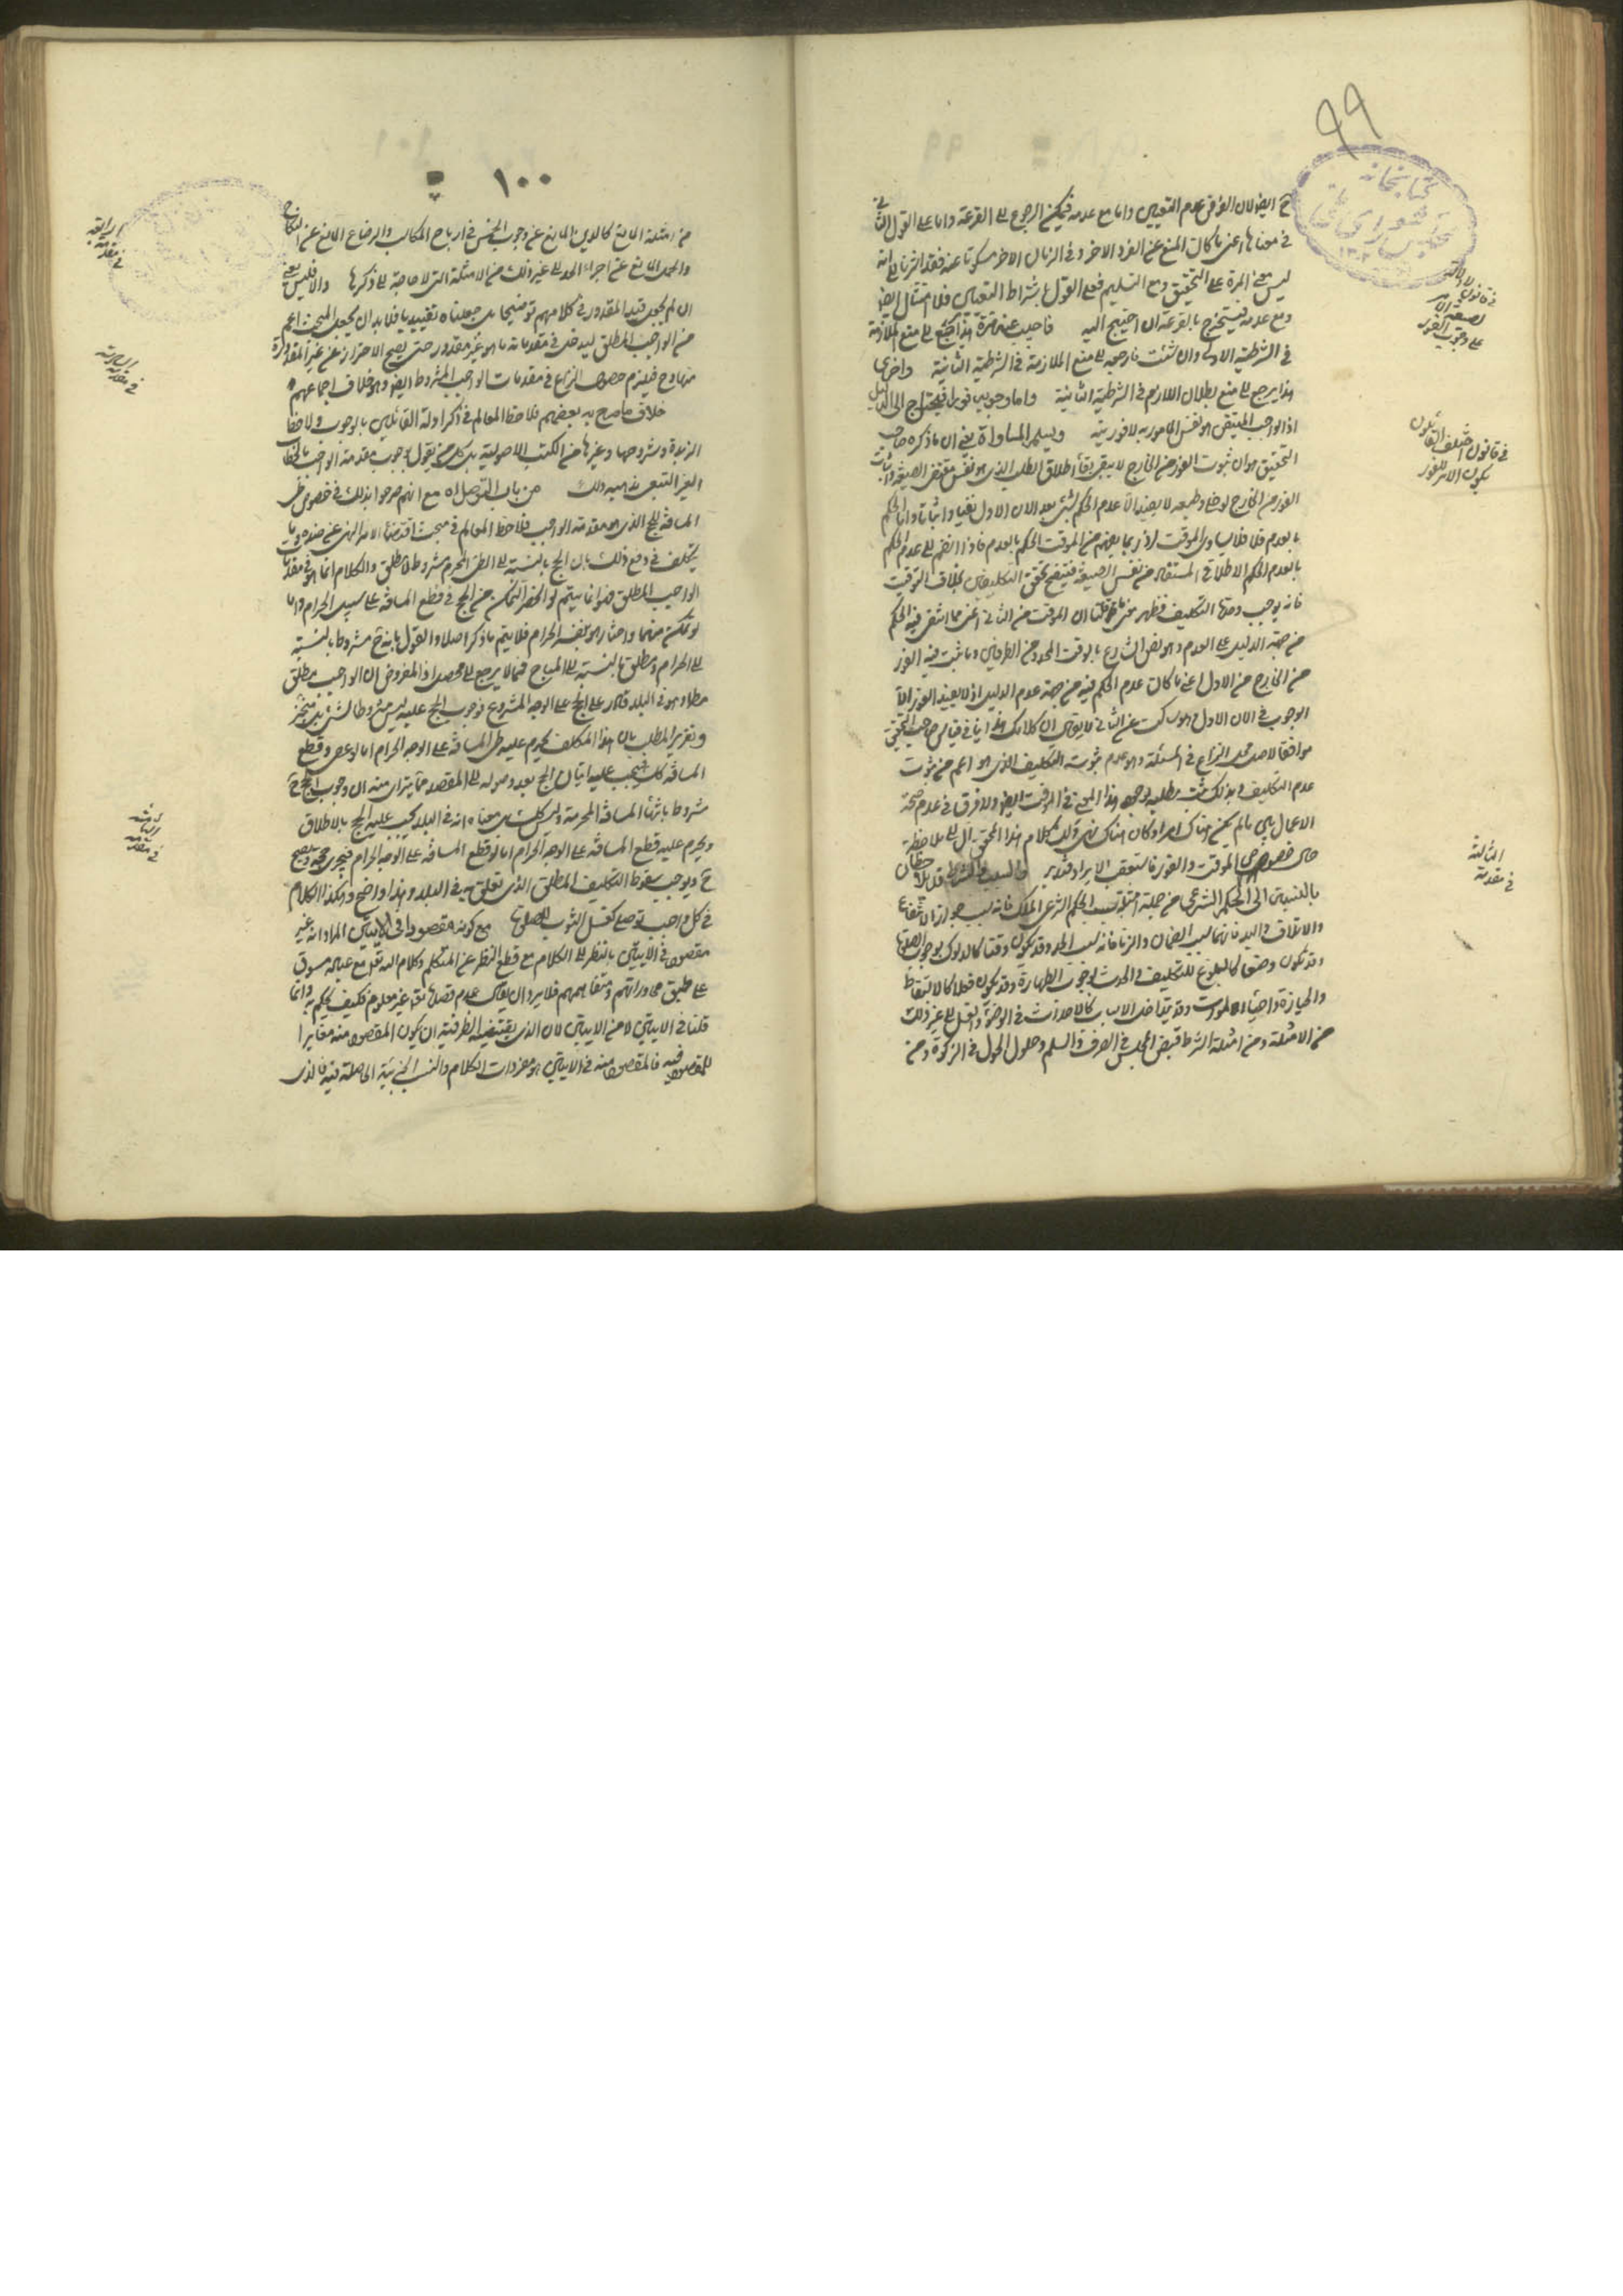 ٩٩
كتابخانه
مجلس شورای ملی
ايضا لان الفرض عدم التعيين واما مع عدمه فيمكن الرجوع الى القرعة واما على القول الثانى
فى معناها اعنى ما كان المنع عن الفرد الاخر وفى الزمان الاخر مسكوتا عنه فقد اشرنا الى انه
ليس معنى المرة على التحقيق ومع التسليم فعلى القول باشتراط التعيين فلا امتثال ايضا
ومع عدمه فيستخرج بالقرعة ان احتيج اليه فاجيب عنه تارة هذا راجع الى منع الملازمة
فى الشرطية الاولى وان شئت فارجعه الى منع الملازمة فى الشرطية الثانية واخرى
هذا يرجع الى منع بطلان اللازم فى الشرطية الثانية واما وجوبه فورا فيحتاج الى الدليل
اذ الواجب المقتضى هو نفس المأمور به لا فوريته ويسلم المساواة يعنى ان ما ذكره صاحب
التحقيق هو ان ثبوت الفور من الخارج لا يبقى اطلاق الطلب الذى هو نفس مقتضى الصيغة
الفور من الخارج لا يفيد الا عدم الحكم بشئ بعد الان الاول نفيا واثباتا واما الحكم
بالعدم فلا فلا يساوى الموقت اذ ربما يفهم من الموقت الحكم بالعدم فاذا انضم الى عدم الحكم
بالعدم الحكم الاطلاقى المستفاد من نفس الصيغة فينتج تحقق التكليف بخلاف التوقيت
فانه يوجب وحدة التكليف فظهر ان الموقت من الثانى اعنى مما انتفى فيه الحكم
من جهة الدليل على العدم وهو نص الشارع بالوقت المحدود من الطرفين وما ثبت فيه الفور
من الخارج من الاول اعنى ما كان عدم الحكم فيه من جهة عدم الدليل اذ لا يفيد الفور الا
الوجوب فى الان الاول وهو ساكت عن الثانى لا يقال ان كلامك هذا ينافى
موافقا لاصل محل النزاع فى المسئلة وهو عدم ثبوت التكليف الذى هو اعم من ثبوت
عدم التكليف وبذلك يثبت مطلبه يوجب هذا المعنى فى الموقت ايضا ولا فرق فى عدم صحة
الاعمال بين ما لم يكن هناك امر او كان هناك نهى
حال خصوص الموقت والفور فاستعقب الايراد فتدبر والسبب والشرط قد يلاحظان
بالنسبة الى الحكم الشرعى من جملة امثلة سبب الحكم الشرعى الملك فانه سبب جواز الانتفاع
والاتلاف واليد فانهما سبب الضمان والزنا فانه سبب الحد وقد يكون وقتا كالدلوك لوجوب الصلوة
وقد يكون وصفا كالبلوغ للتكليف والحدث لوجوب الطهارة وقد يكون فعلا كالالتقاط
والحيازة واحياء الموات وقد يتداخل الاسباب كالاحداث فى الوضوء والغسل الى غير ذلك
من الامثلة ومن امثلة الشرط قبض المجلس فى الصرف والسلم وحلول الحول فى الزكوة ومن
فى قانون
على وجوب الفور
فى قانون اختلف القائلون
بكون الامر للفور
الثالثة
فى مقدمة
١٠٠
من امثلة المانع كالدين المانع عن وجوب الخمس فى ارباح المكاسب والرضاع المانع عن النكاح
والجهل المانع عن اجراء الحد الى غير ذلك من الامثلة التى لا حاجة الى ذكرها والا فليس يعنى
ان لم يجعل قيد المقدور فى كلامهم توضيحا بل جعلناه تقييديا فلا بد ان يجعل المبحث اعم
من الواجب المطلق ليدخل فى مقدماته ما هو غير مقدور حتى يصح الاحتراز عن غير المقدورة
منها وح فيلزم حصول النزاع فى مقدمات الواجب المشروط ايضا وهو خلاف اجماعهم
خلاف ما صرح به بعضهم فلاحظ المعالم فى ذكر ادلة القائلين بالوجوب ولاحظ
الزبدة وشروحها وغيرها من الكتب الاصولية بل كل من يقول بوجوب مقدمة الواجب بالخطاب
الغير التبعى مذهبه ذلك من باب التوصل اه مع انهم صرحوا بذلك فى خصوص طى
المسافة للحج الذى هو مقدمة الواجب فلاحظ المعالم فى مبحث اقتضاء الامر النهى عن ضده وما
يتكلف فى دفع ذلك بان الحج بالنسبة الى الطى المحرم مشروط لا مطلق والكلام انما هو فى مقدمات
الواجب المطلق فهو انما يتم لو انحصر التمكن من الحج فى قطع المسافة على سبيل الحرام واما
لو تمكن منهما واختار هو بنفسه الحرام فلا يتم ما ذكر اصلا والقول بانه ح مشروط بالنسبة
الى الحرام ومطلق بالنسبة الى المباح فمما لا يرجع الى محصل اذ المفروض ان الواجب مطلق
مطلا وهو فى البلد قادر على الحج على الوجه المشروع فوجوب الحج عليه ليس مشروطا بشئ بل منجز
وتقرير المطلب بان هذا المكلف يحرم عليه طى المسافة على الوجه الحرام اما لو عصى وقطع
المسافة كذلك فيجب عليه اتيان الحج بعد وصوله الى المقصد مما يترائى منه ان وجوب الحج ح
مشروط باتيان المسافة المحرمة وليس كذلك بل معناه انه فى البلد يجب عليه الحج بالاطلاق
ويحرم عليه قطع المسافة على الوجه الحرام اما لو قطع المسافة على الوجه الحرام فيجزى عنه ويصح
ح ويوجب سقوط التكليف المطلق الذى تعلق به فى البلد وهذا واضح وهكذا الكلام
فى كل واجب توصلى كغسل الثوب للصلوة مع كونه مقصودا فى الايتين المراد انه غير
مقصود فى الايتين بالنظر الى الكلام مع قطع النظر عن المتكلم وكلام الله تع مع عباده مسوق
على طبق محاوراتهم وتفاهمهم فلا يرد ان يقال عدم قصد الله تع غير معلوم فكيف يحكم به وانما
قلنا فى الايتين لا من الايتين لان الذى يقتضيه الظرفية ان يكون المقصود منه مغايرا
للمقصود فيه فالمقصود منه فى الايتين هو مفردات الكلام والنسب الجزئية الحاصلة فيه فالذى
الرابعة
فى مقدمة
السادسة
فى مقدمة
فى مقدمة